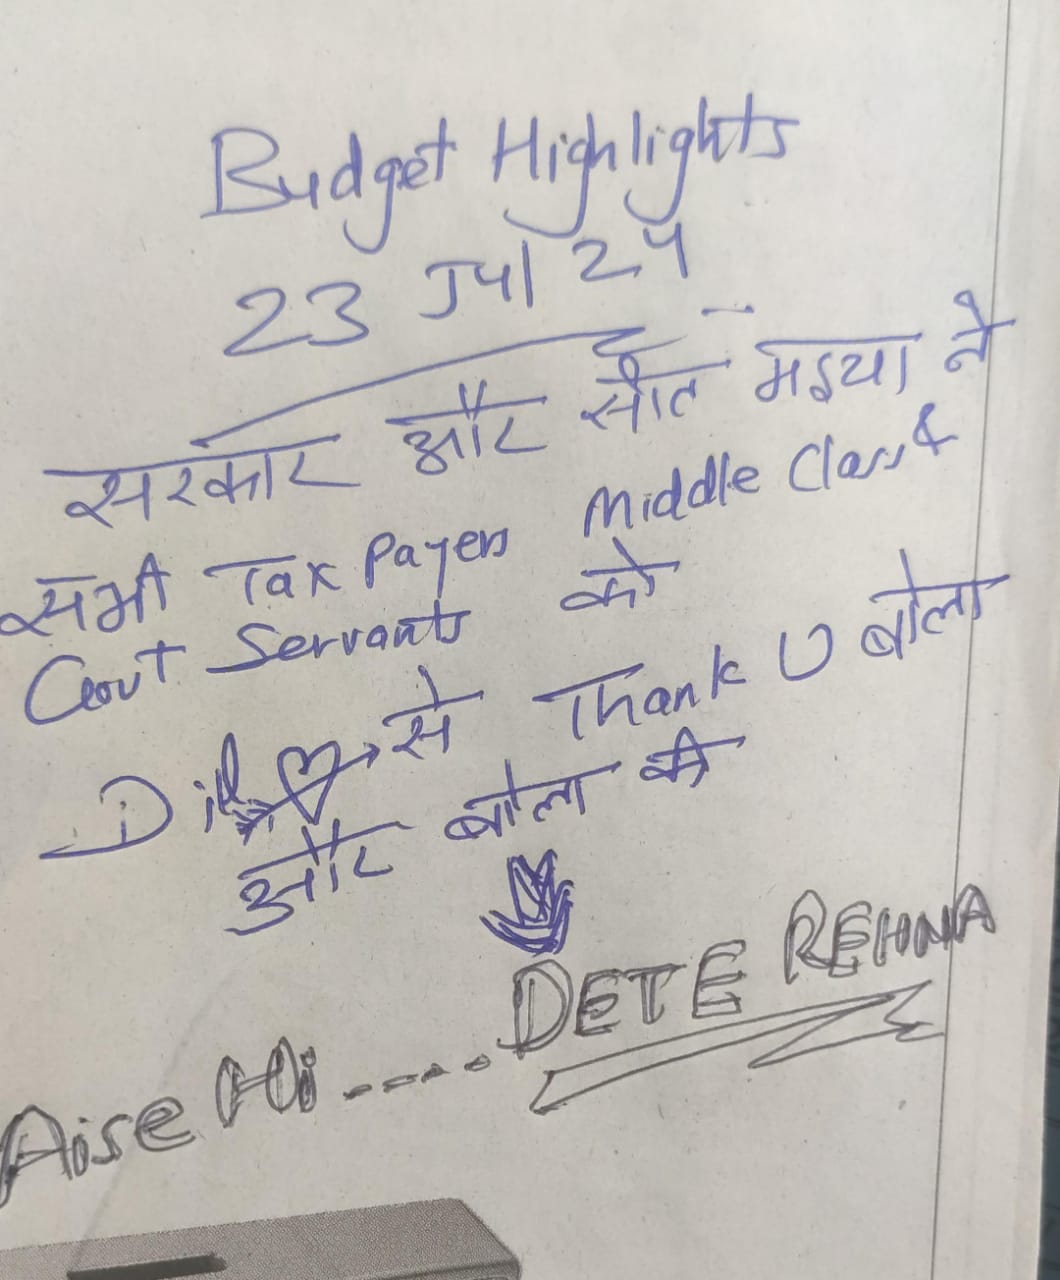 Budget Highlights
23 Jul 24
सरकार और सीत मइया ने
सभी Tax Payers Middle Class &
Govt Servants को
Dil से Thank U बोला
और बोला की
DETE REHNA
Aise Hi ----